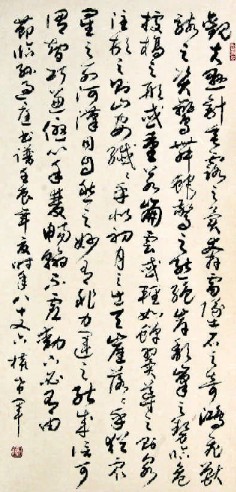 觀夫懸針垂露之異奔雷墜石之奇鴻飛獸
駭之資鸞舞蛇驚之態絕岸頹峰之勢臨危
據槁之形或重若崩雲或輕如蟬翼導之則泉
注頓之則山安纖纖乎似初月之出天崖落落乎猶眾
星之列河漢同自然之妙有非力運之能成信可
謂智巧兼優心手雙暢翰不虛動下必有由
節臨孫過庭書譜壬辰年夏時年八十又六